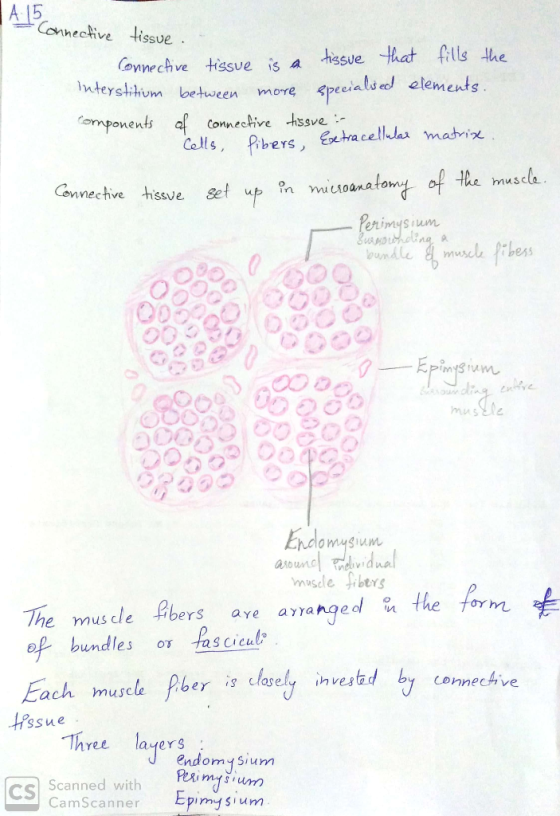 A.15
Connective tissue.
Connective tissue is a tissue that fills the
Interstitium between more specialised elements.
components of connective tissue :-
Cells, fibers, Extracellular matrix.
Connective tissue set up in microanatomy of the muscle.
Perimysium
surrounding a
bundle of muscle fibers
Epimysium
surrounding entire
muscle
Endomysium
around individual
muscle fibers
The muscle fibers are arranged in the form
of bundles or fasciculi.
Each muscle fiber is closely invested by connective
tissue.
Three layers :
endomysium
Perimysium
Epimysium.
CS Scanned with
CamScanner